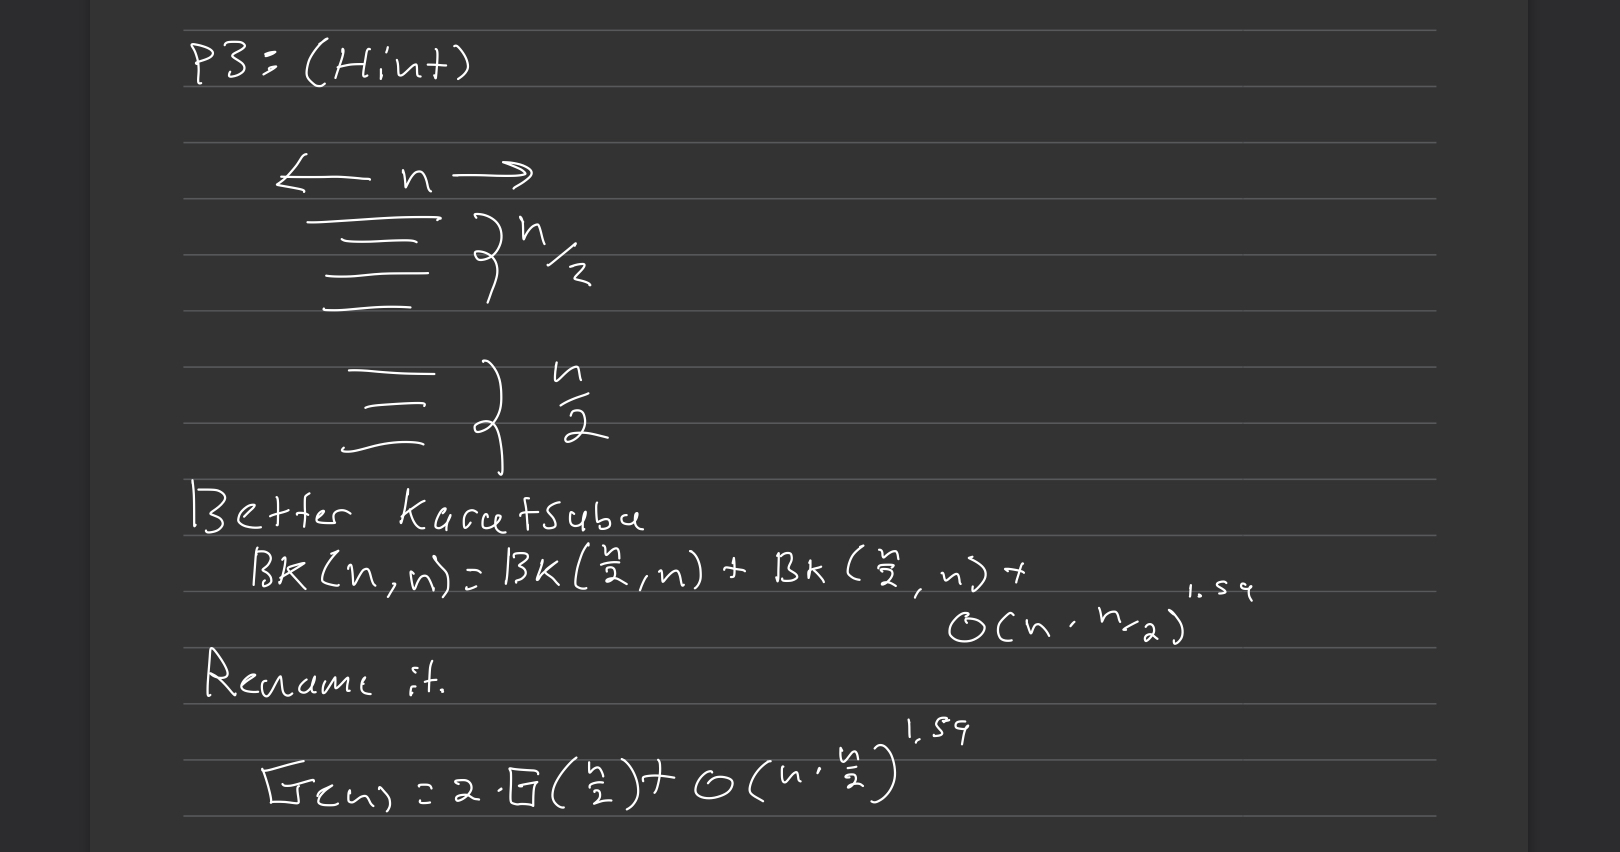 P3: (Hint)
← n →
} n/2
} n/2
Better Karatsuba
BK(n,n) = BK(n/2,n) + BK(n/2,n) +
O(n · n/2)^1.59
Rename it.
G(n) = 2 · G(n/2) + O(n · n/2)^1.59